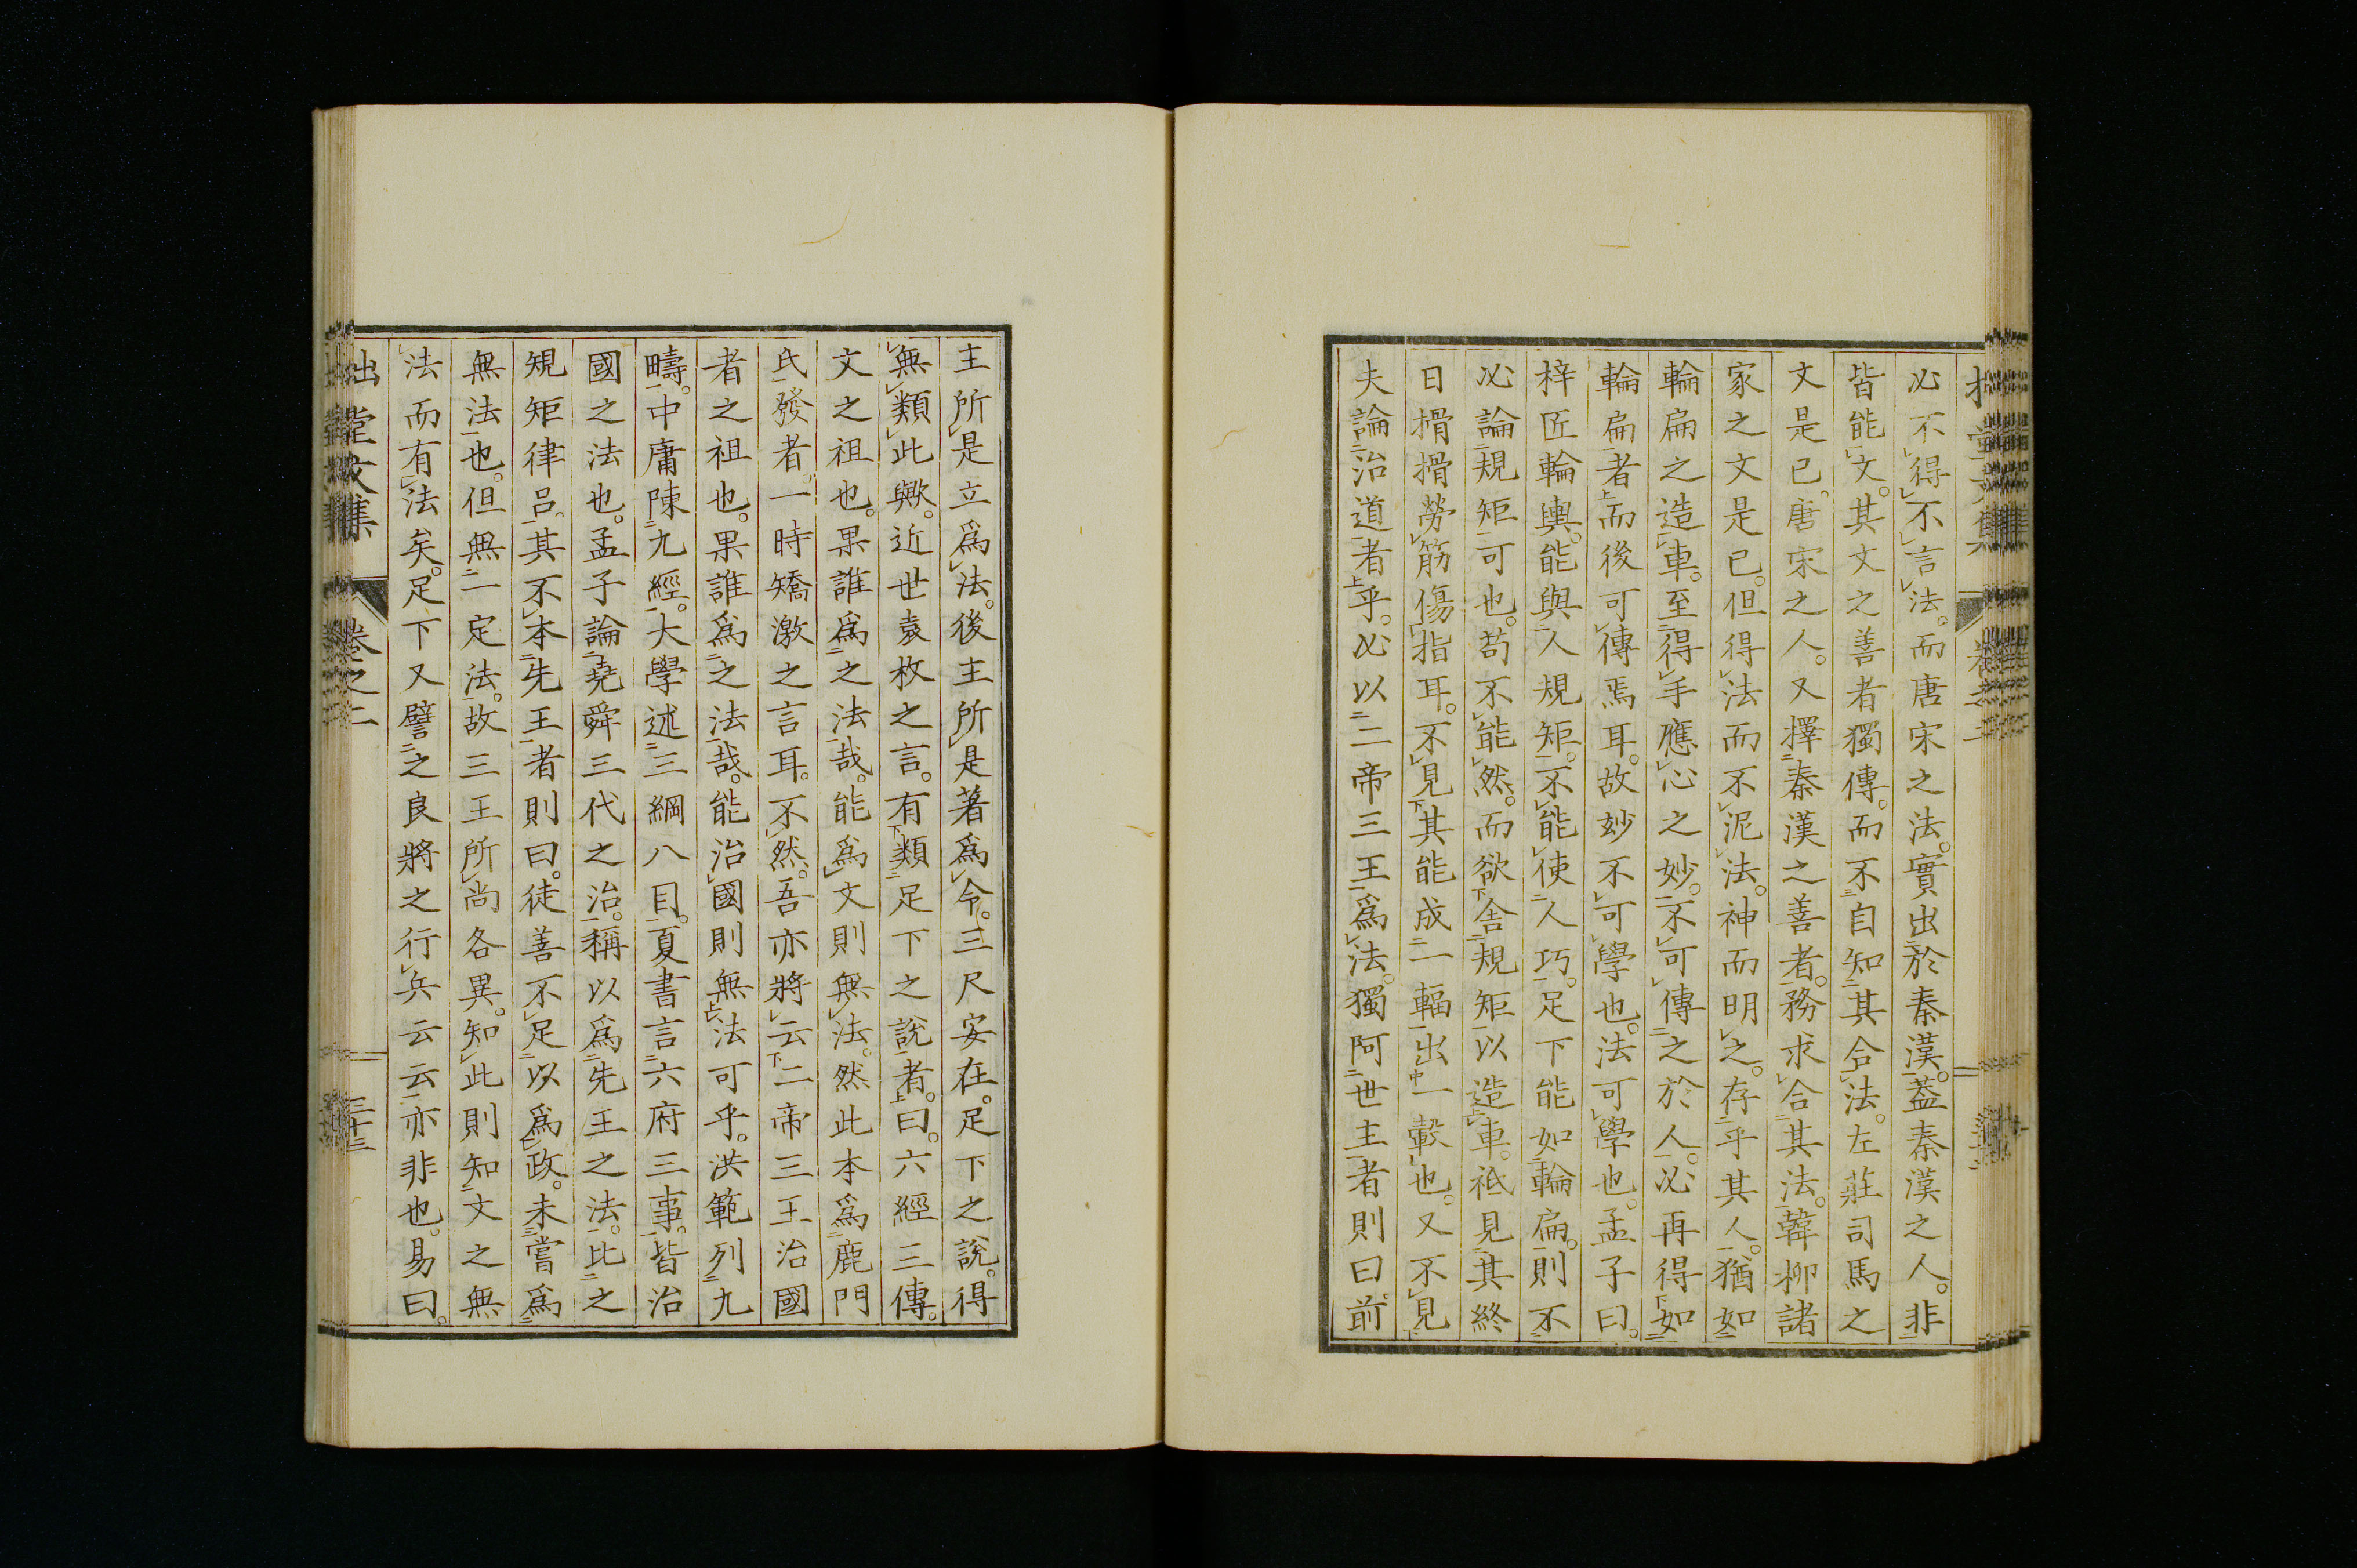 必不得不言法。而唐宋之法。實出於秦漢。蓋秦漢之人。非
皆能文。其文之善者獨傳。而不自知其合法。左莊司馬之
文是已。唐宋之人。又擇秦漢之善者。務求合其法。韓柳諸
家之文是已。但得法而不泥法。神而明之。存乎其人。猶如
輪扁之造車。至得手應心之妙。不可傳之於人。必再得如
輪扁者而後可傳焉耳。故妙不可學也。法可學也。孟子曰。
梓匠輪輿。能與人規矩。不能使人巧。足下能如輪扁。則不
必論規矩可也。苟不能然。而欲舍規矩以造車。祗見其終
日搰搰勞筋傷指耳。不見其能成一輻出一轂也。又不見
夫論治道者乎。必以二帝三王為法。獨阿世主者則曰。前
主所是立為法。後主所是著為令。三尺安在。足下之說。得
無類此歟。近世袁枚之言。有類足下之說者。曰。六經三傳。
文之祖也。果誰為之法哉。能為文則無法。然此本為鹿門
氏發者。一時矯激之言耳。不然。吾亦將云二帝三王治國
者之祖也。果誰為之法哉。能治國則無法可乎。洪範列九
疇。中庸陳九經。大學述三綱八目。夏書言六府三事。皆治
國之法也。孟子論堯舜三代之治。稱以為先王之法。比之
規矩律呂。其不本先王者則曰。徒善不足以為政。未嘗為
無法也。但無一定法。故三王所尚各異。知此則知文之無
法而有法矣。足下又譬之良將之行兵云云亦非也。易曰。
拙堂文集 卷之二 三十三